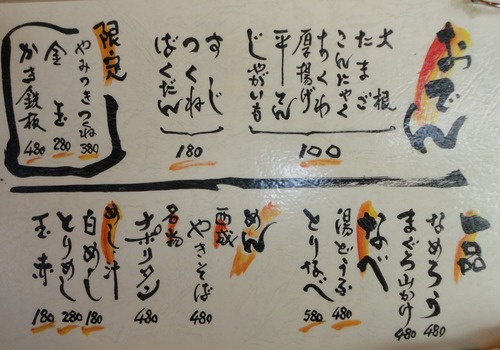 おでん
大根
たまご
こんにゃく
ちくわ
厚揚げ
平てん
じゃがいも
100
すじ
つくね
ばくだん
180
限定
やみつきつくね 380
金玉 280
かき鉄板 480
一品
なめろう 480
まぐろ山かけ 480
なべ
湯どうふ 480
とりなべ 580
めん
西成
やきそば 480
名物
ナポリタン 480
めし・汁
白めし 180
とりめし 280
玉赤 180